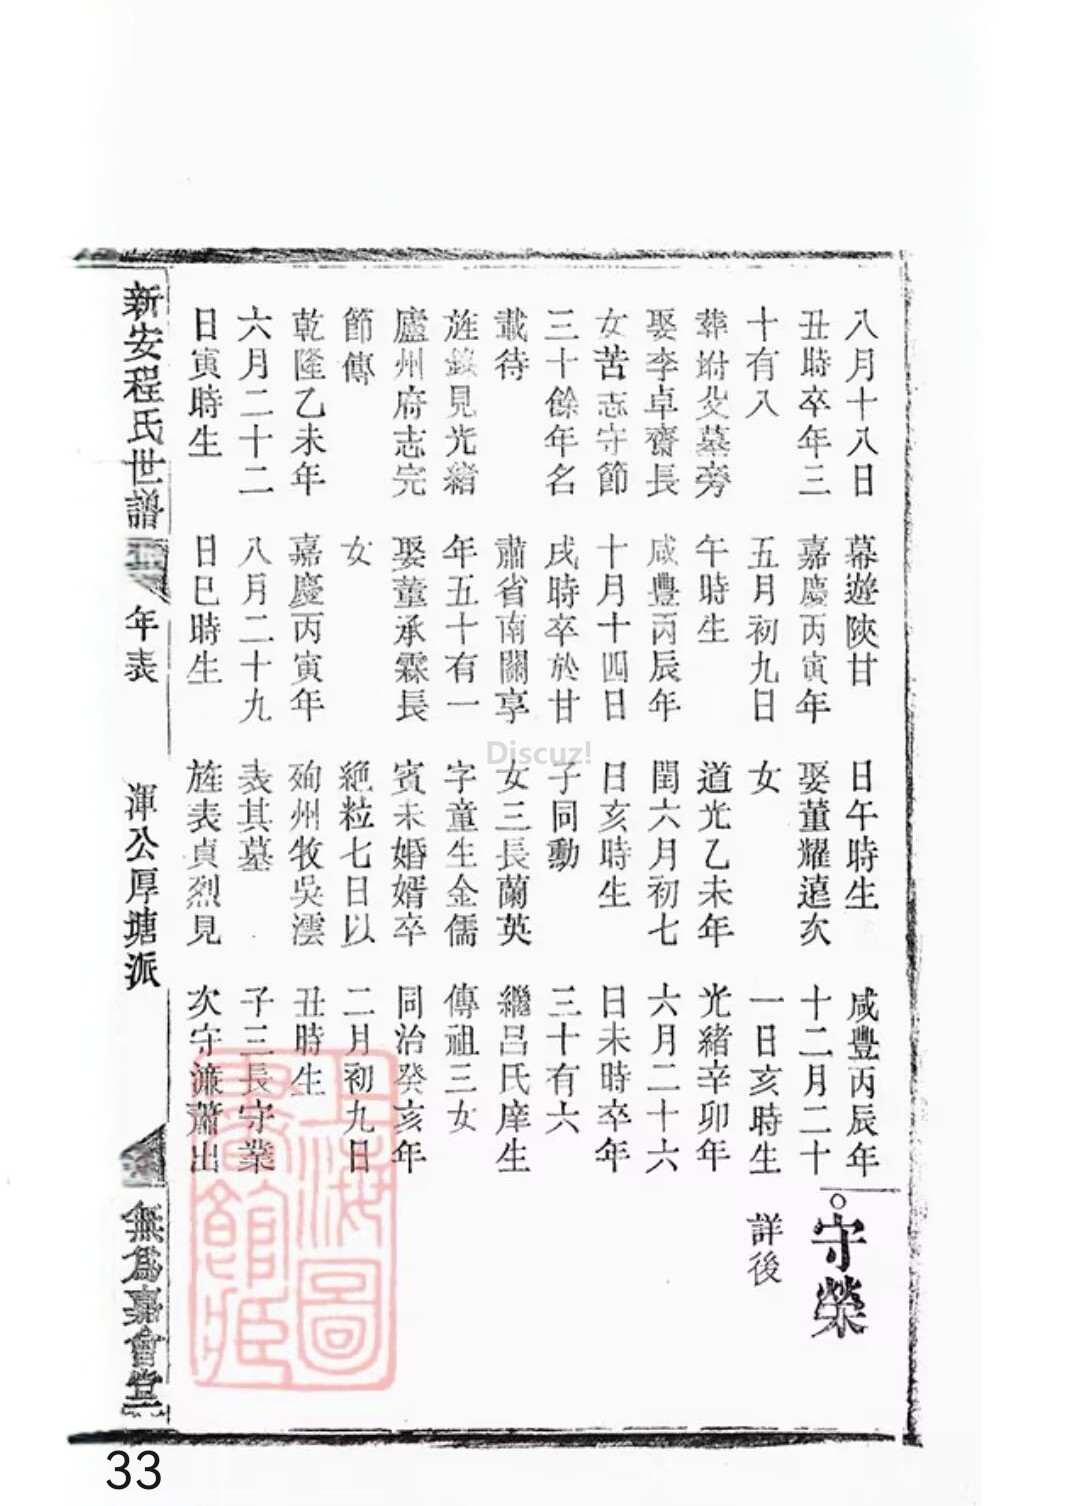 八月十八日
丑時卒年三
十有八
葬坿父墓旁
娶李卓齋長
女苦志守節
三十餘年名
載待
旌錄見光緒
廬州府志完
節傳
乾隆乙未年
六月二十二
日寅時生
幕遊陝甘
嘉慶丙寅年
五月初九日
午時生
咸豐丙辰年
十月十四日
戌時卒於甘
肅省南關享
年五十有一
娶董承霖長
女
嘉慶丙寅年
八月二十九
日巳時生
日午時生
娶董耀遠次
女
道光乙未年
閏六月初七
日亥時生
子同勳
女三長蘭英
字童生金儒
賓未婚婿卒
絶粒七日以
殉州牧吳澐
表其墓
旌表貞烈見
咸豐丙辰年
十二月二十
一日亥時生
光緒辛卯年
六月二十六
日未時卒年
三十有六
繼呂氏庠生
傳祖三女
同治癸亥年
二月初九日
丑時生
子三長守業
次守濂蕭出
守榮
詳後
新安程氏世譜
年表
渾公厚塘派
無爲嘉會堂
上海圖
書館藏
Discuz!
33